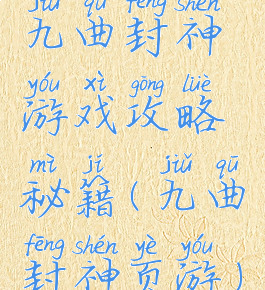 jiǔ qū fēng shén
九曲封神
yóu xì gōng lüè
游戏攻略
mì jí jiǔ qū
秘籍(九曲
fēng shén yè yóu
封神页游)